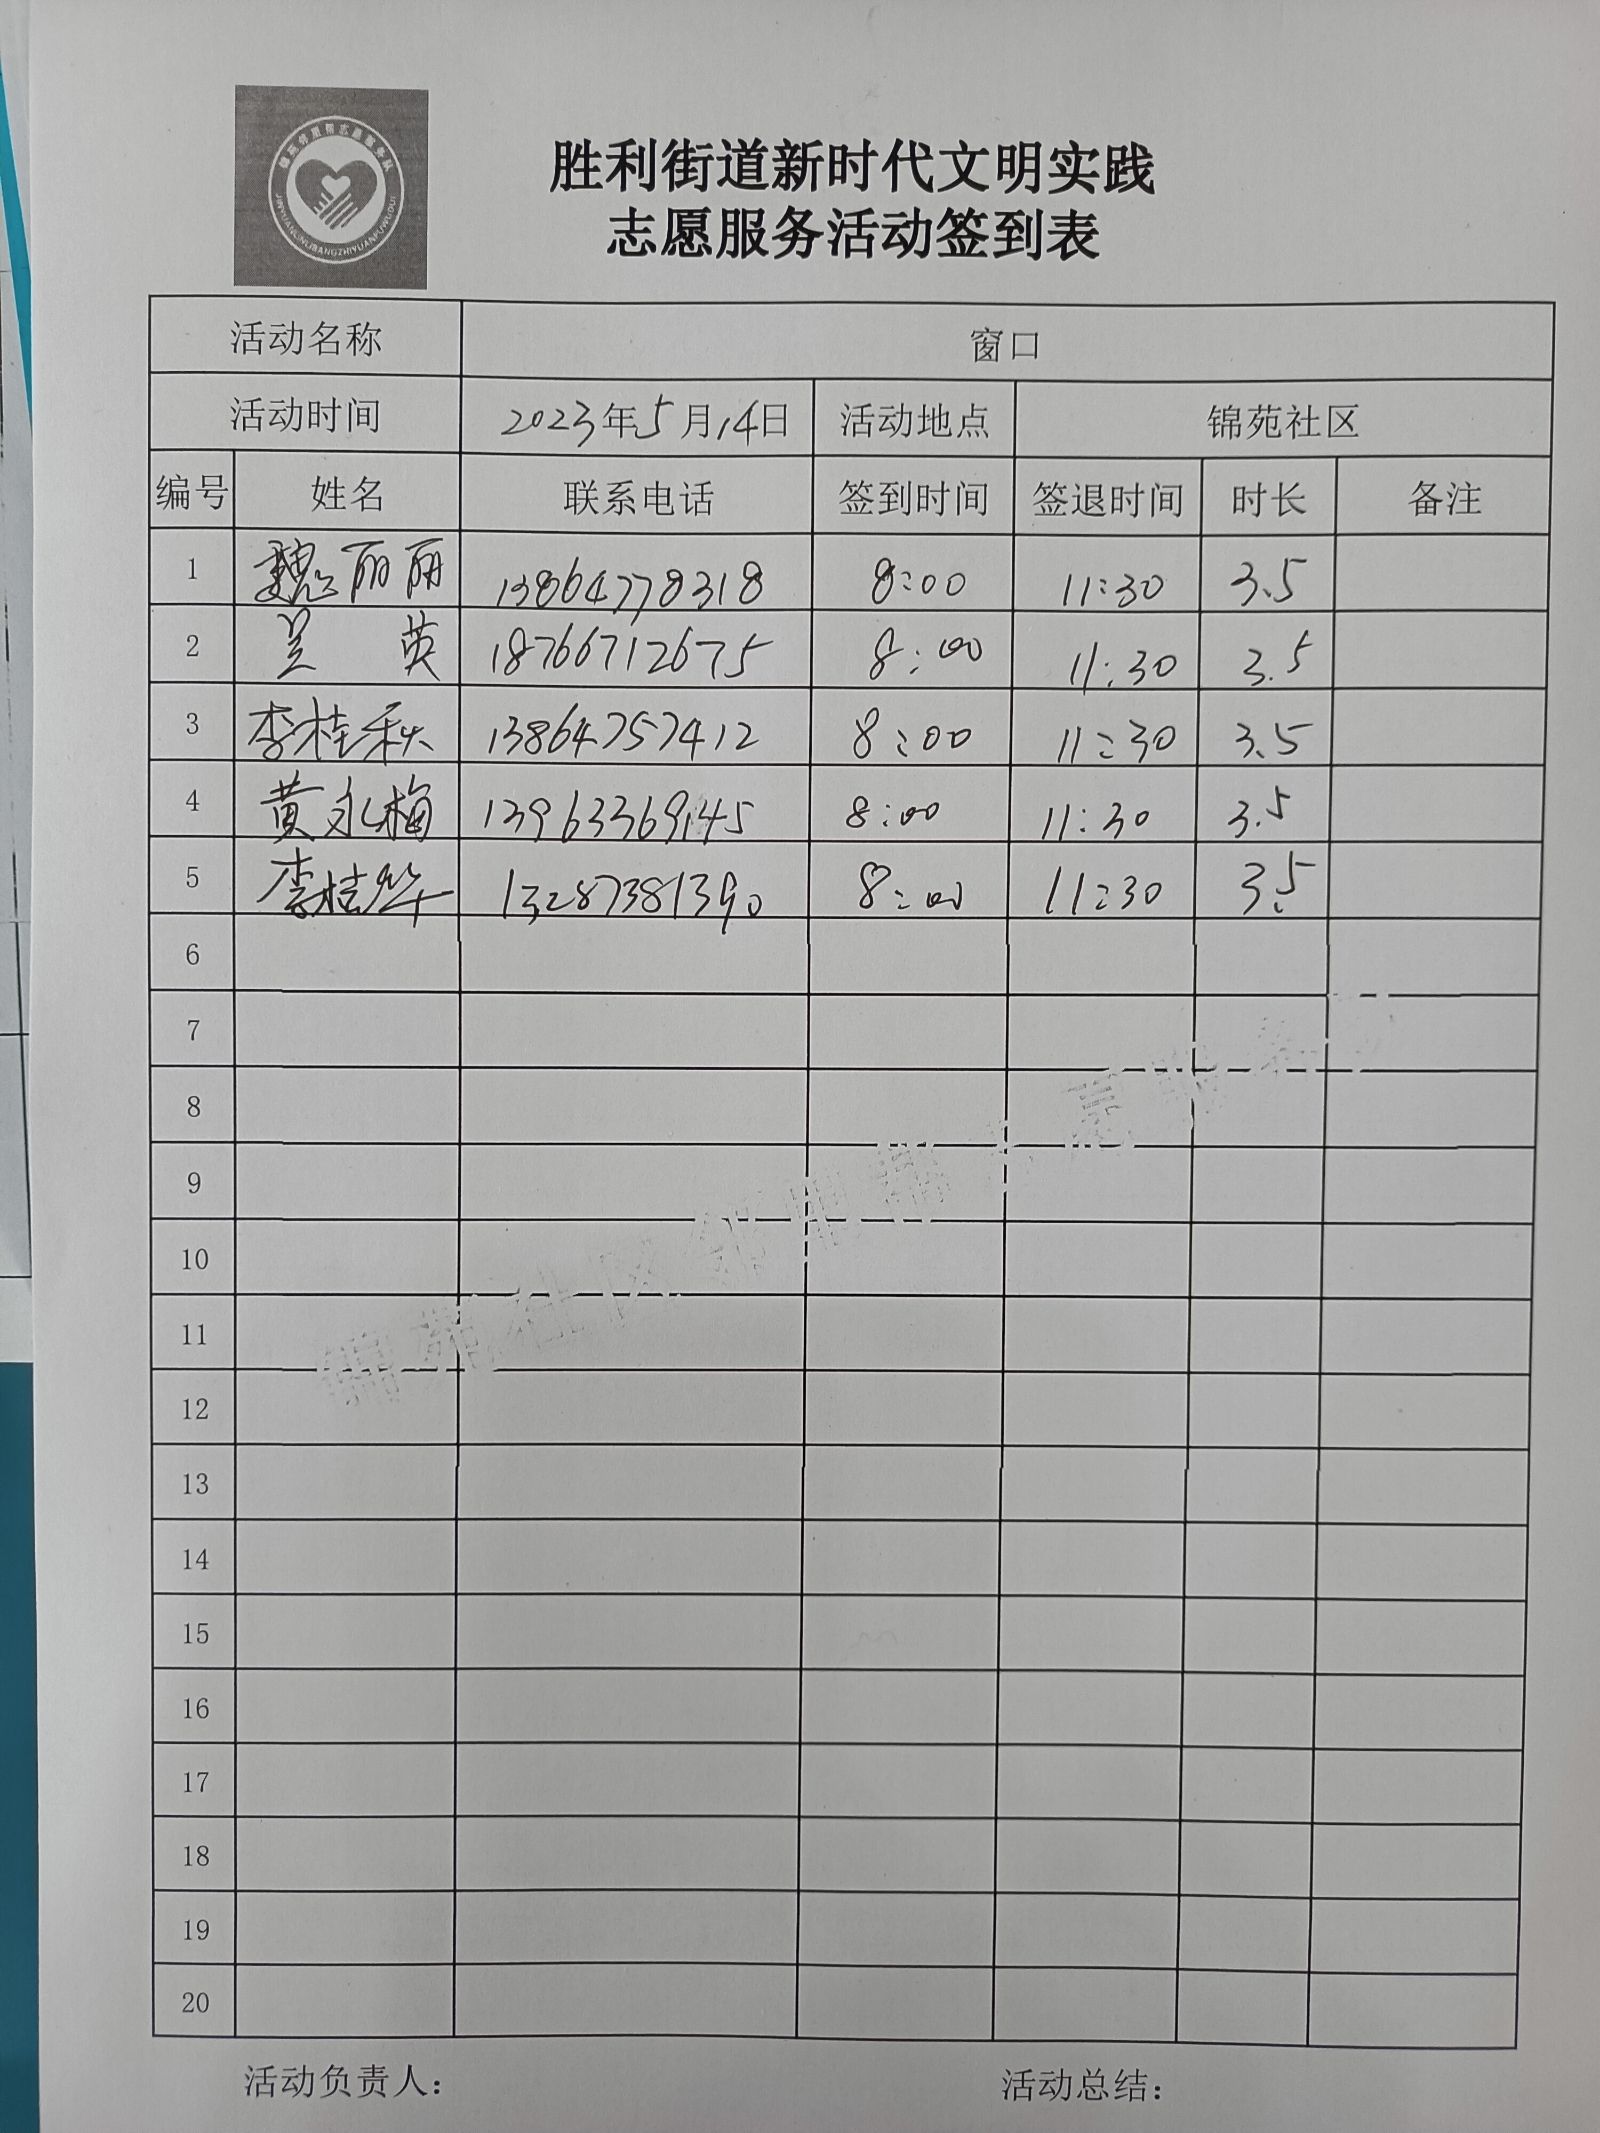 胜利街道新时代文明实践
志愿服务活动签到表
活动名称 窗口
活动时间 2023年5月14日 活动地点 锦苑社区
编号 姓名 联系电话 签到时间 签退时间 时长 备注
1 魏丽丽 13864778318 8:00 11:30 3.5
2 吴英 18766712675 8:00 11:30 3.5
3 李桂秋 13864757412 8:00 11:30 3.5
4 黄永梅 13963369145 8:00 11:30 3.5
5 李桂华 13287381390 8:00 11:30 3.5
6
7
8
9
10
11
12
13
14
15
16
17
18
19
20
锦苑社区邻里帮志愿服务
活动负责人: 活动总结: